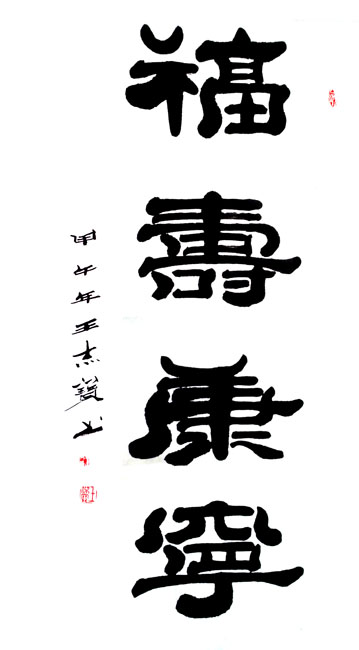 福壽康寧
甲午年王杰寶